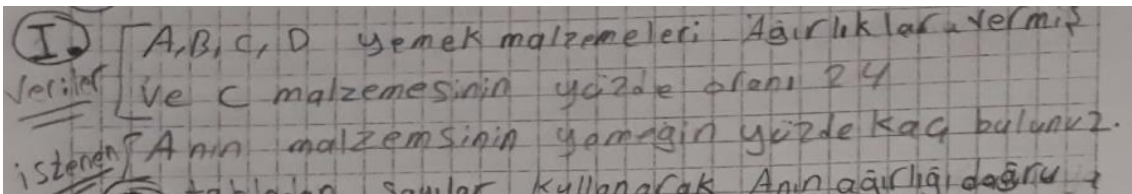 I. A, B, C, D yemek malzemeleri Ağırlıkları vermiş
Veriler ve C malzemesinin yüzde oranı 24
istenen A nın malzemsinin yemeğin yüzde kaç bulunuz.
tablodan sayılar kullanarak Anın ağırlığı doğru